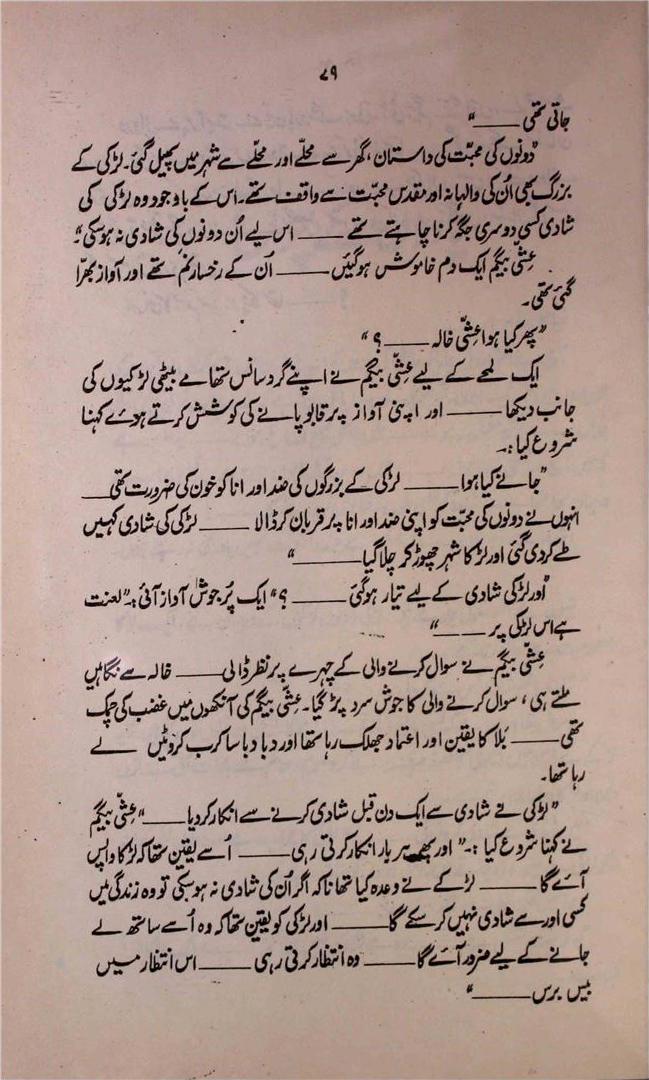 ۷۹
جاتی تھی ـــــــ"
"دونوں کی محبّت کی داستان، گھر سے محلّے اور محلّے سے شہر میں پھیل گئی۔ لڑکی کے
بزرگ بھی اُن کی والہانہ اور مقدس محبت سے واقف تھے۔ اس کے باوجود وہ لڑکی کی
شادی کسی دوسری جگہ کرنا چاہتے تھے ـــــــ اس لیے اُن دونوں کی شادی نہ ہو سکی"۔
عشّی بیگم ایک دم خاموش ہوگئیں ـــــــ اُن کے رخسار نم تھے اور آواز بھرّا
گئی تھی۔
"پھر کیا ہوا عشّی خالہ ـــــــ ؟"
ایک لمحے کے لیے عشّی بیگم نے اپنے گرد سانس تھامے بیٹھی لڑکیوں کی
جانب دیکھا ـــــــ اور اپنی آواز پر قابو پانے کی کوشش کرتے ہوئے کہنا
شروع کیا :۔
"جانے کیا ہوا ـــــــ لڑکی کے بزرگوں کی ضد اور انا کو خون کی ضرورت تھی ـــــــ
انہوں نے دونوں کی محبّت کو اپنی ضد اور انا پر قربان کر ڈالا ـــــــ لڑکی کی شادی کہیں
طے کر دی گئی اور لڑکا شہر چھوڑ کر چلا گیا ـــــــ"
"اور لڑکی شادی کے لیے تیار ہوگئی ـــــــ ؟" ایک پُر جوش آواز آئی :۔ "لعنت
ہے اس لڑکی پر ـــــــ"
عشّی بیگم نے سوال کرنے والی کے چہرے پر نظر ڈالی ـــــــ خالہ سے نگاہیں
ملتے ہی، سوال کرنے والی کا جوش سرد پڑ گیا۔ عشّی بیگم کی آنکھوں میں غضب کی چمک
تھی ـــــــ بَلا کا یقین اور اعتماد جھلک رہا تھا اور دبا دبا سا کرب کروٹیں لے
رہا تھا۔
"لڑکی نے شادی سے ایک دن قبل شادی کرنے سے انکار کر دیا ـــــــ" عشّی بیگم
نے کہنا شروع کیا :۔ "اور پھر ہر بار انکار کرتی رہی ـــــــ اُسے یقین تھا کہ لڑکا واپس
آئے گا ـــــــ لڑکے نے وعدہ کیا تھا نا کہ اگر اُن کی شادی نہ ہو سکی تو وہ زندگی میں
کسی اور سے شادی نہیں کر سکے گا ـــــــ اور لڑکی کو یقین تھا کہ وہ اُسے ساتھ لے
جانے کے لیے ضرور آئے گا ـــــــ وہ انتظار کرتی رہی ـــــــ اس انتظار میں
بیس برس ـــــــ"